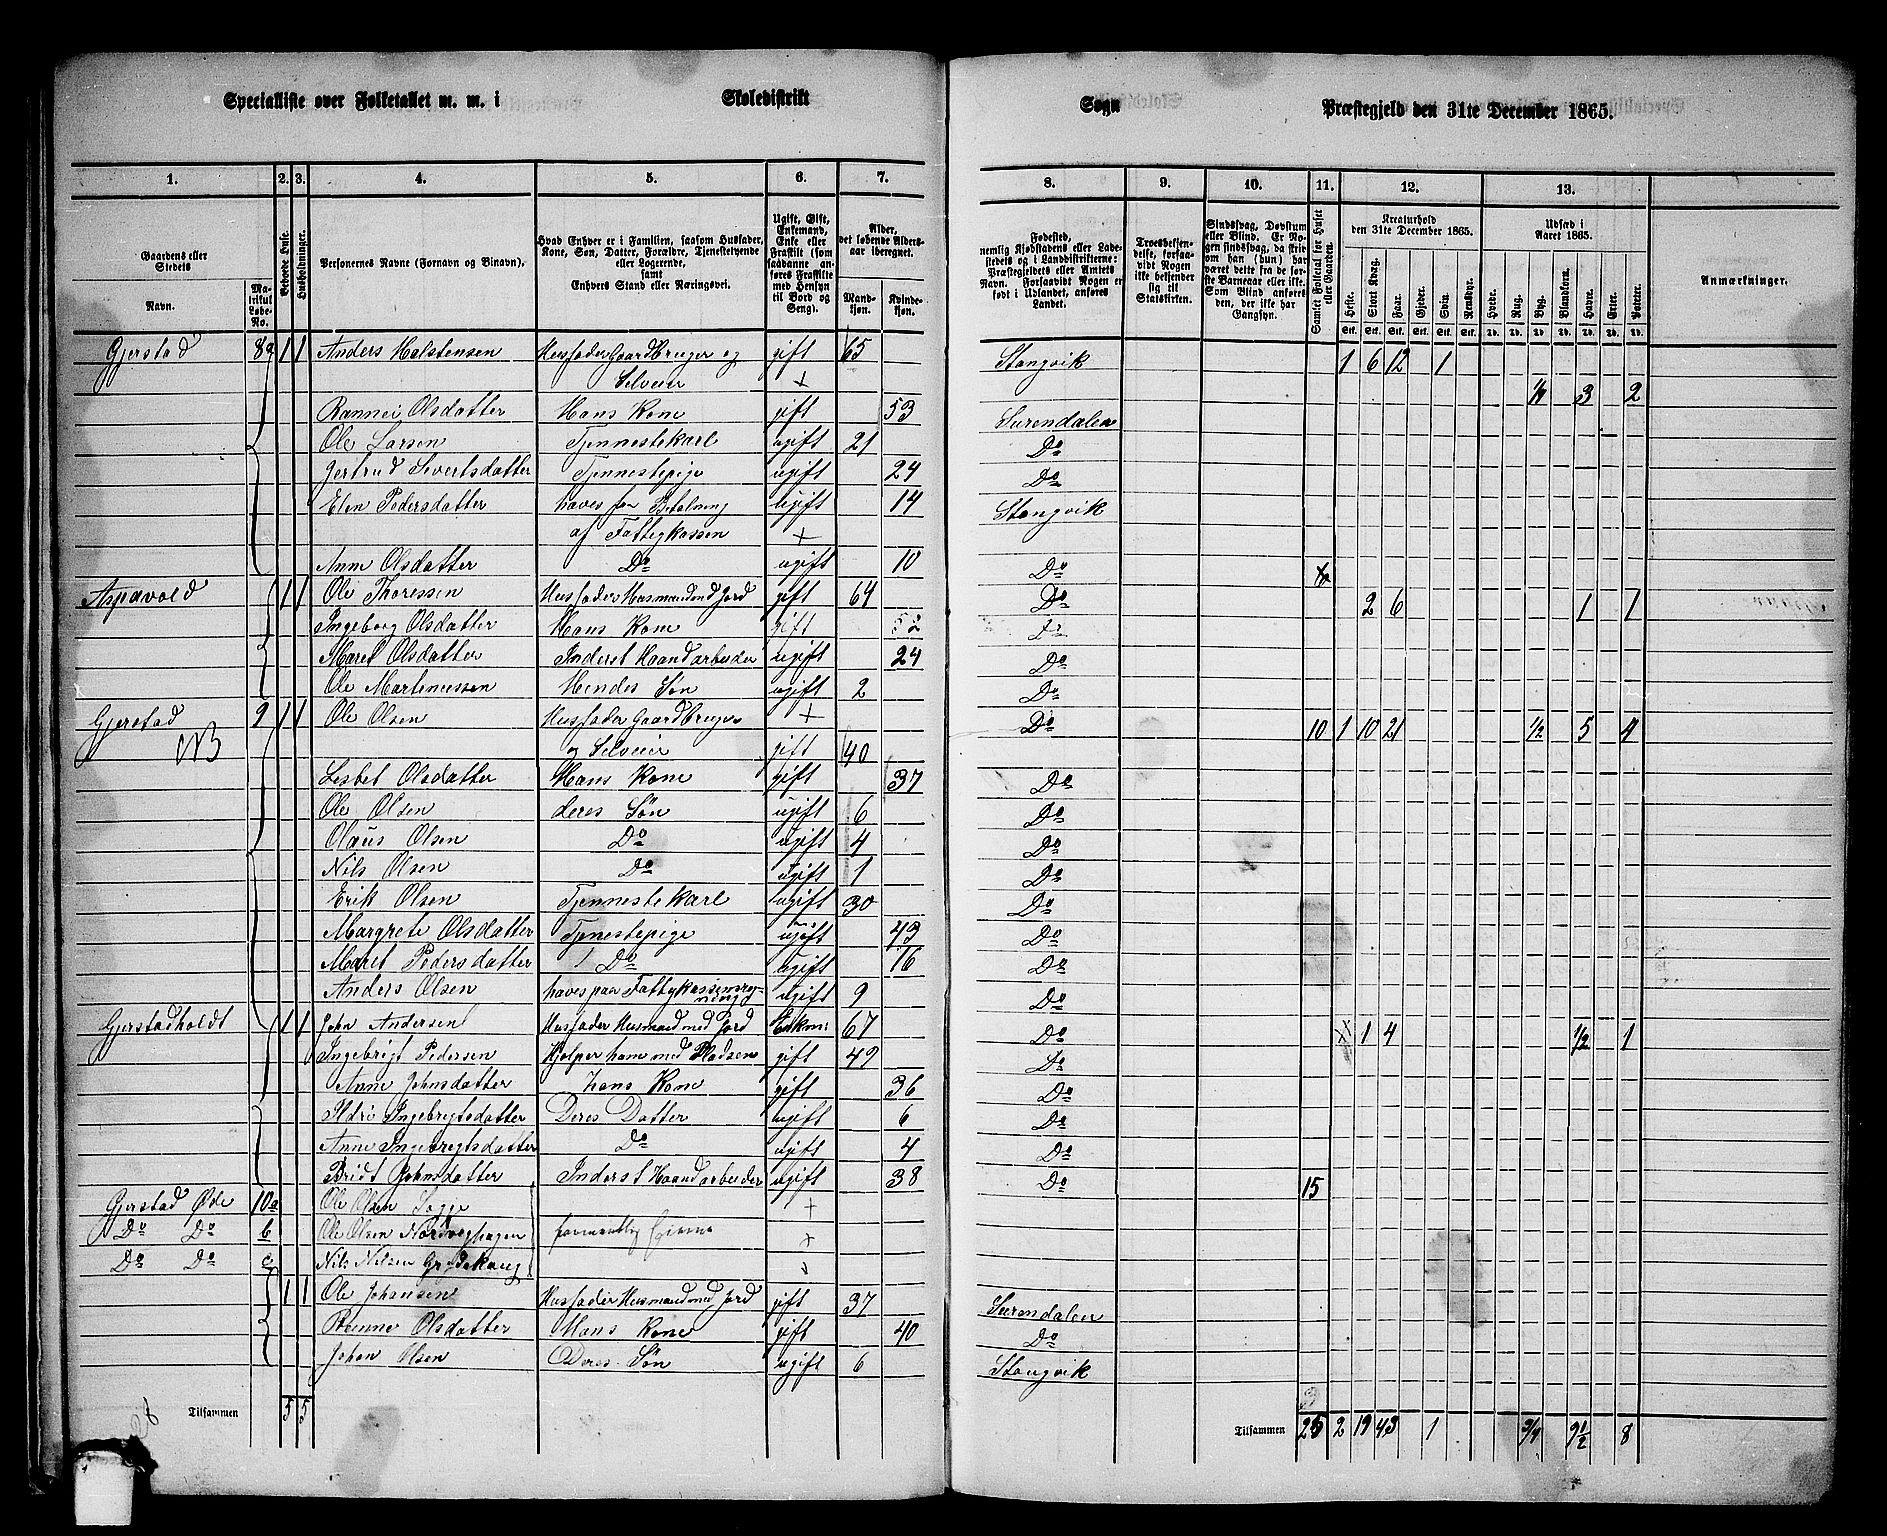 Specialliste over Folketallet m. m. i Skoledistrikt Sogn Præstegjeld den 31te December 1865.
1. 2. 3. 4. 5. 6. 7. 8. 9. 10. 11. 12. 13.
Gaardens eller Stedets
Navn.
Matrikul Løbe-No.
Beboede Huse.
Husholdninger.
Personernes Navne (Fornavn og Binavn).
Hvad Enhver er i Familien, saasom Husfader, Kone, Søn, Datter, Forældre, Tjenestetyende eller Logerende,
samt
Enhvers Stand eller Næringsvei.
Ugift, Gift, Enkemand, Enke eller Fraskilt (som saadanne anføres Fraskilte med Hensyn til Bord og Seng).
Alder, det løbende Aldersaar iberegnet.
Mandkjøn. Kvindekjøn.
Fødested, nemlig Kjøbstadens eller Ladestedets og i Landdistrikterne: Præstegjeldets eller Amtets Navn. Forsaavidt Nogen er født i Udlandet, anføres Landet.
Troesbekjendelse, forsaavidt Nogen ikke bekjender sig til Statskirken.
Sindssvag, Døvstum eller Blind. Er Nogen sindssvag, da skrives om han (hun) har været dette fra de første Barneaar eller ikke. Som Blind anføres den, der ikke har Gangsyn.
Samlet Folketal for Huset eller Gaarden.
Kreaturhold den 31te December 1865.
Heste. Stort Kvæg. Faar. Gjeder. Svin. Rensdyr.
Udsæd i Aaret 1865.
Hvede. Rug. Byg. Blandkorn. Havre. Erter. Poteter.
Anmærkninger.
Gjerstad 8a 1 1 Anders Halstensen Husfader Gaardbruger og gift 65 Stangvik 1 6 12 1
Selveier + 1/4 3 2
Rannei Olsdatter Hans Kone gift 53 Surendalen
Ole Larsen Tjennestekarl ugift 21 Do
Gertrud Sivertsdatter Tjennestepige ugift 24 Do
Elen Pedersdatter haves for Betalning ugift 14 Stangvik
af Fattigkassen +
Anne Olsdatter Do ugift 10 Do
Aspavold 1 1 Ole Thoressen Husfader Husmand m Jord gift 64 Do 2 6 1 1
Ingeborg Olsdatter Hans Kone gift 52 Do
Maret Olsdatter Inderst Haandarbeider ugift 24 Do
Ole Martinussen Hendes Søn ugift 2 Do
Gjerstad 9 1 1 Ole Olsen Husfader Gaardbruger + Do 10 1 10 21 1/2 5 4
NB og Selveier gift 40
Lisbet Olsdatter Hans Kone gift 37 Do
Ole Olsen deres Søn ugift 6 Do
Olaus Olsen Do ugift 4 Do
Nils Olsen Do ugift 1 Do
Erik Olsen Tjennestekarl ugift 30 Do
Margrete Olsdatter Tjenestepige ugift 43 Do
Maret Pedersdatter Do ugift 16 Do
Anders Olsen haves paa Fattigkassensregning ugift 9 Do
Gjerstadholdt 1 1 John Andersen Husfader Husmand med Jord Enkm: 67 Do 1 4 1/2 1
Ingebrigt Pedersen Hjelper ham med Pladsen gift 49 Do
Anne Johnsdatter hans Kone gift 36 Do
Ildri Ingebrigtsdatter Deres Datter ugift 6 Do
Anne Ingebrigtsdatter Do ugift 4 Do
Bridt Johnsdatter Inderst Haandarbeider ugift 38 Do 15
Gjerstad Øde 10a Ole Olsen +
Do Do b Ole Olsen Nordvighagen +
Do Do c Nils Nilsen
1 1 Ole Johansen Husfader Husmand med Jord gift 37 Surendalen
Olsdatter Hans Kone gift 40 Do
Johan Olsen Deres Søn ugift 6 Stangvik
Tilsammen 5 5 Tilsammen 2 19 43 1 3/4 9 1/2 8
28